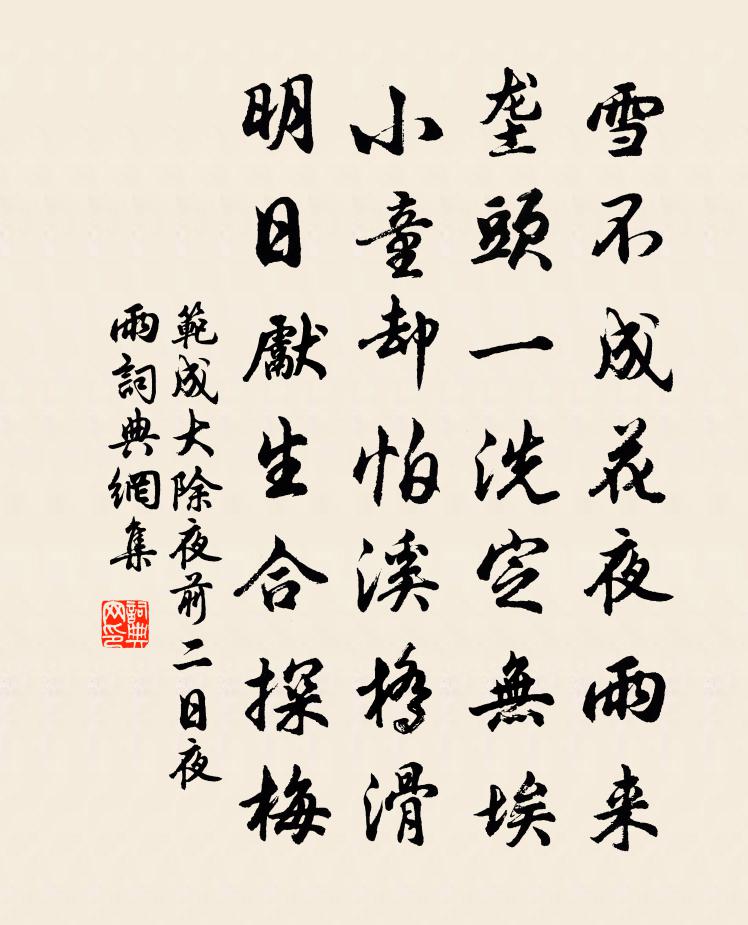 雪不成花夜雨来
垄頭一洗定無埃
小童却怕溪橋滑
明日獻生合探梅
範成大除夜前二日夜
雨詞典網集
詞典
网印